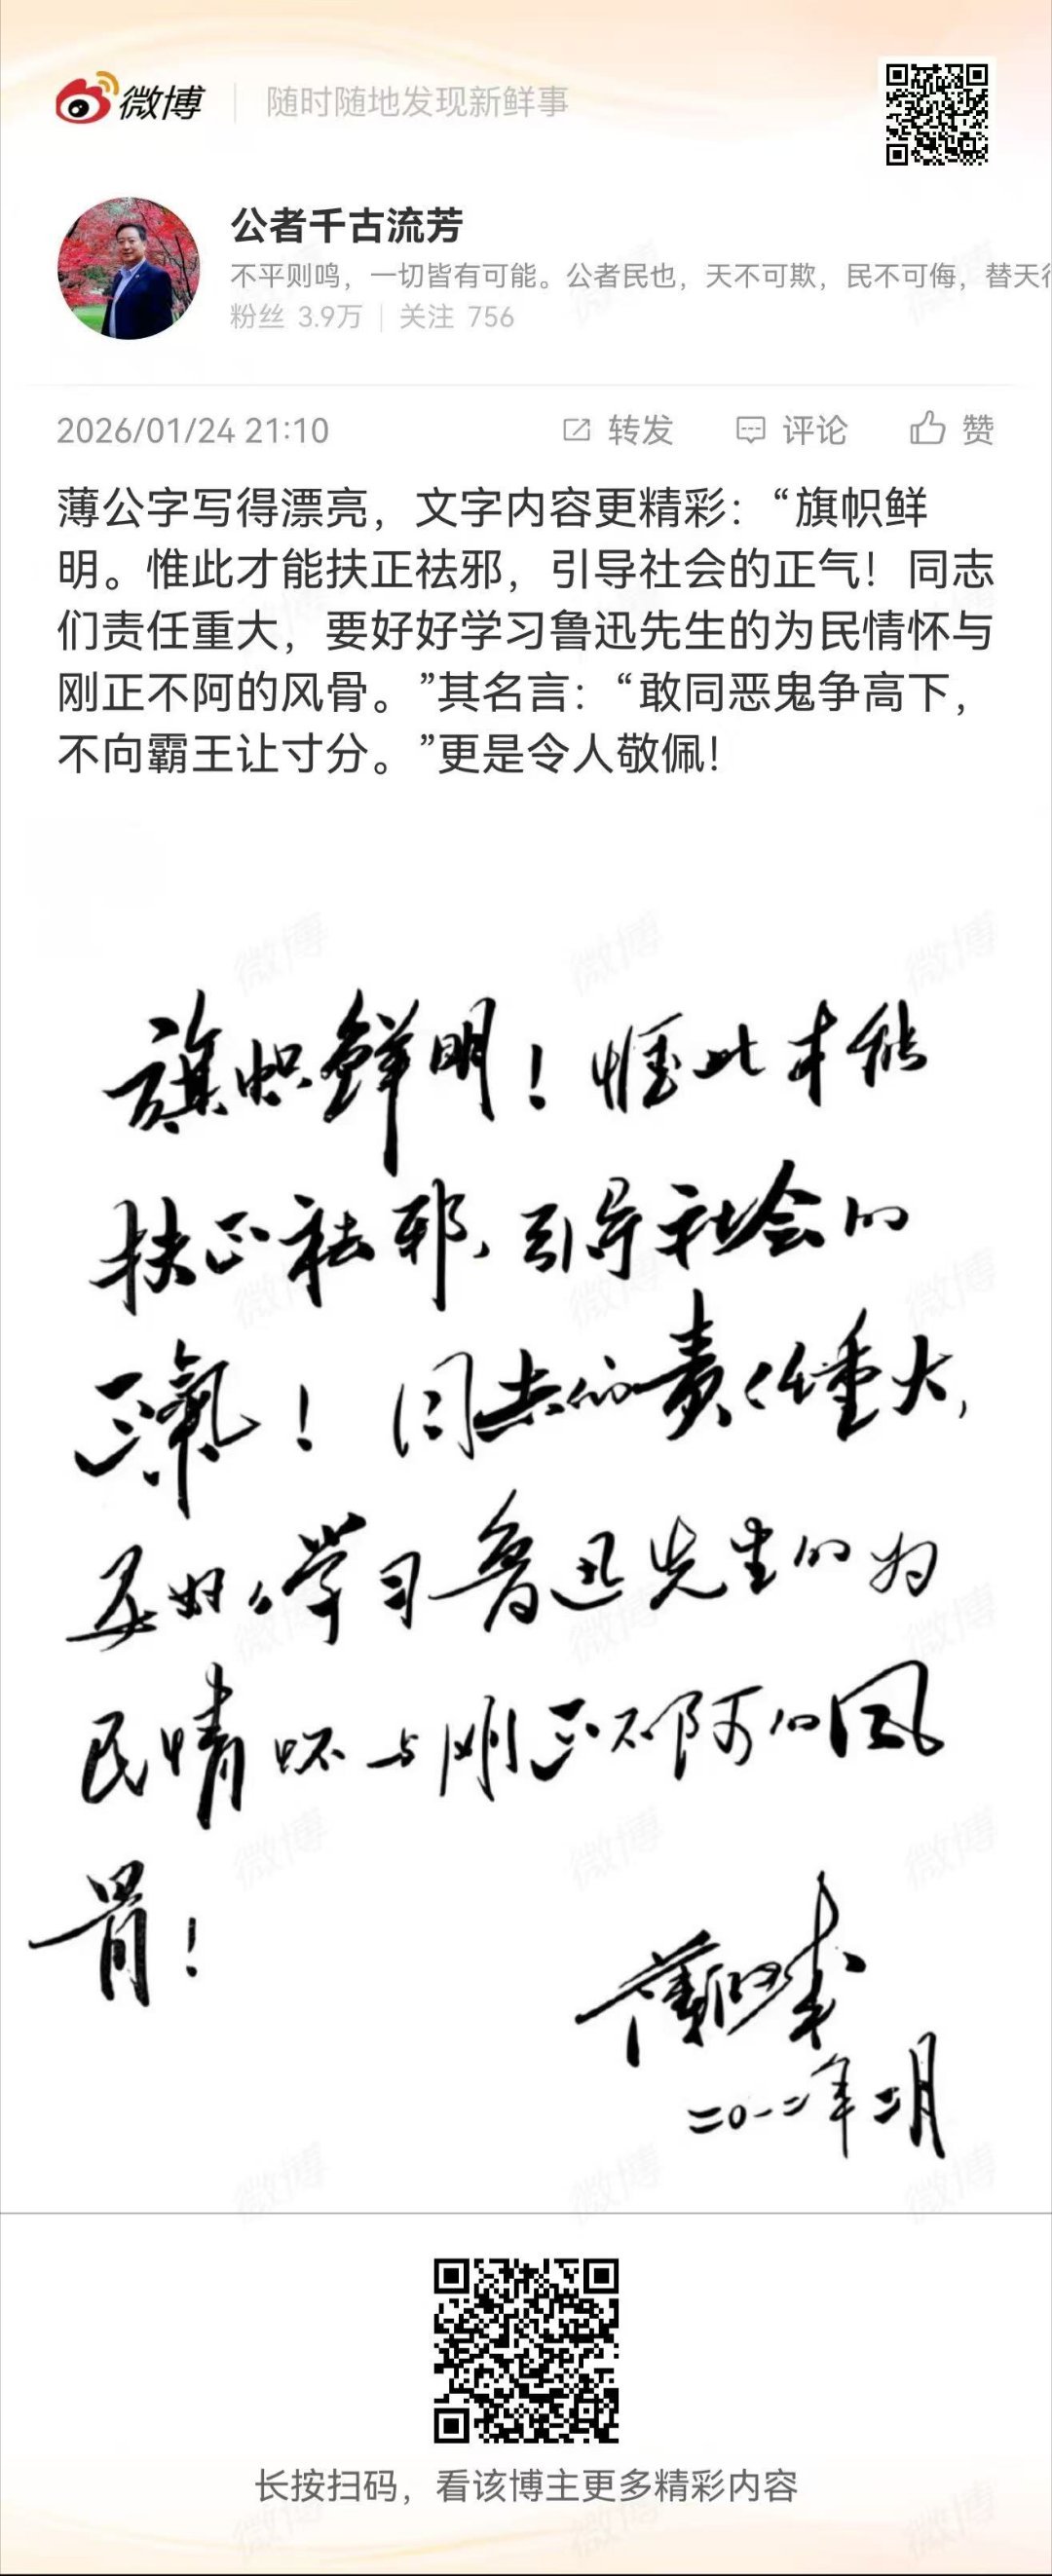 微博 随时随地发现新鲜事
公者千古流芳
不平则鸣，一切皆有可能。公者民也，天不可欺，民不可侮，替天行
粉丝 3.9万 关注 756
2026/01/24 21:10 转发 评论 赞
薄公字写得漂亮，文字内容更精彩：“旗帜鲜
明。惟此才能扶正祛邪，引导社会的正气！同志
们责任重大，要好好学习鲁迅先生的为民情怀与
刚正不阿的风骨。”其名言：“敢同恶鬼争高下，
不向霸王让寸分。”更是令人敬佩！
旗帜鲜明！惟此才能
扶正祛邪，引导社会的
正氣！同志们责任重大，
要好好学习鲁迅先生的为
民情怀与刚正不阿的风
骨！
薄熙来
二〇一二年二月
长按扫码，看该博主更多精彩内容